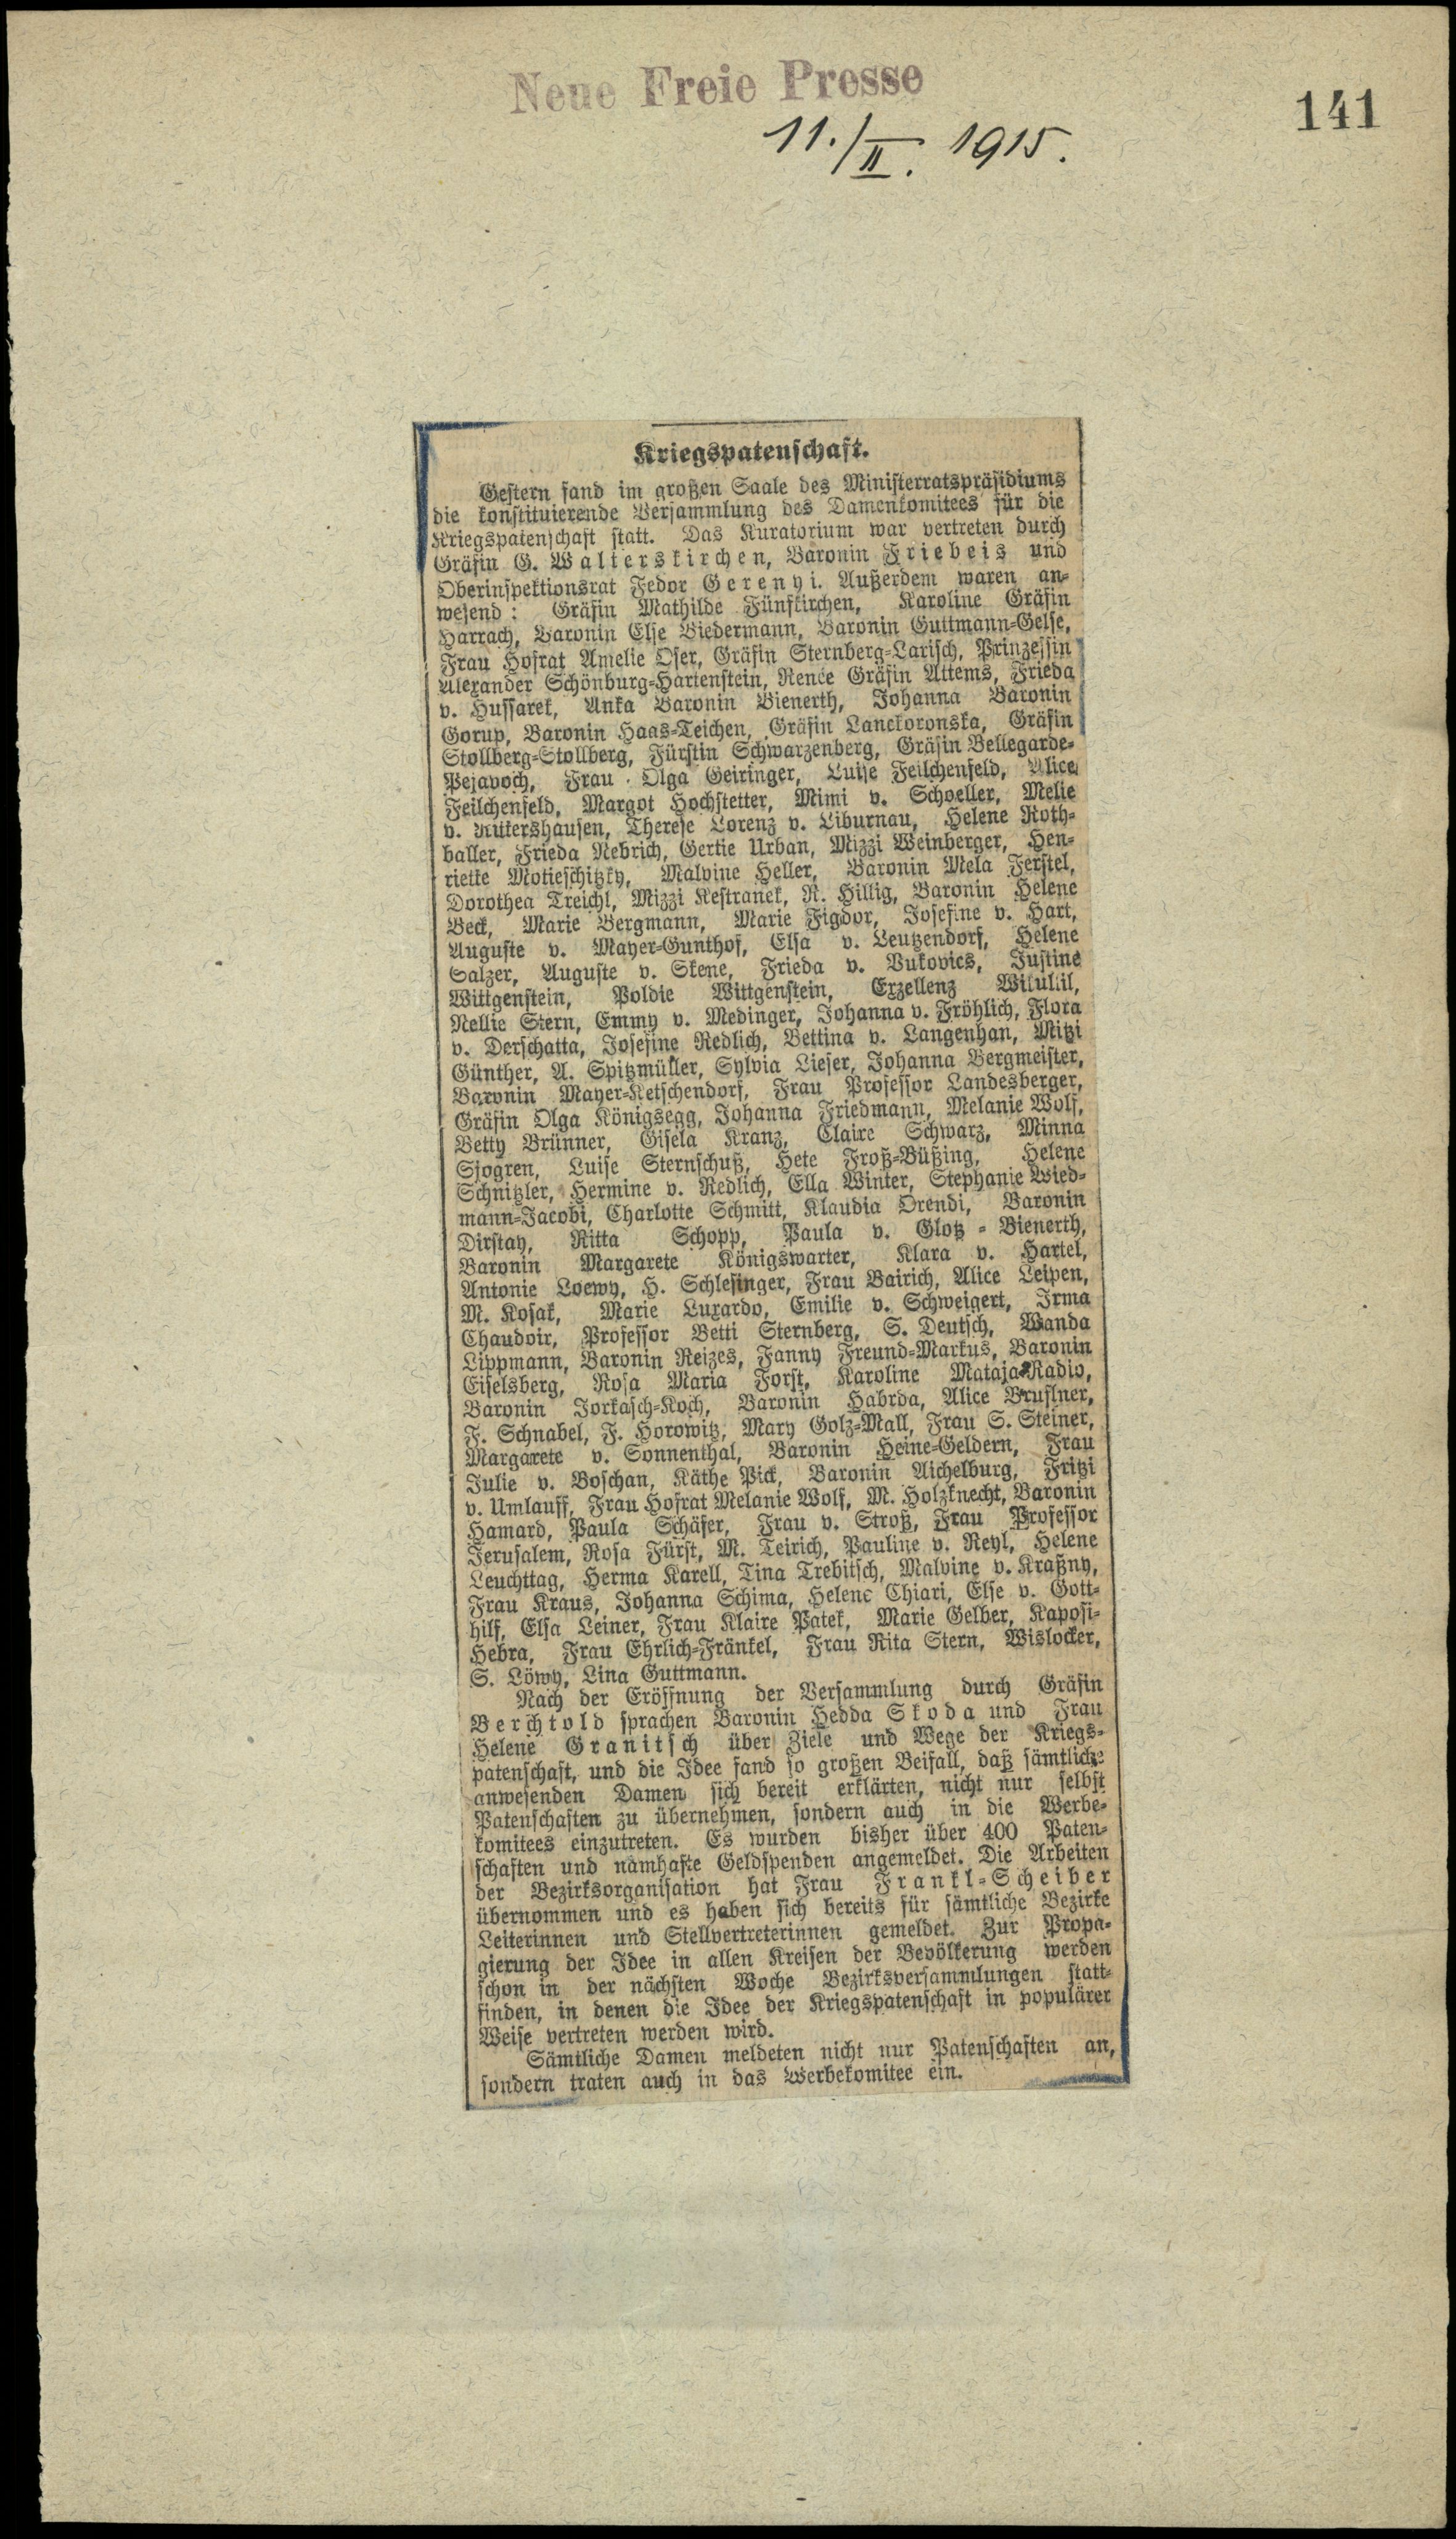 Neue Freie Presse
141
11./II. 1915.
Kriegspatenschaft.
Gestern fand im großen Saale des Ministerratspräsidiums
die konstituierende Versammlung des Damenkomitees für die
Kriegspatenschaft statt. Das Kuratorium war vertreten durch
Gräfin G. Walterskirchen, Baronin Friebeis und
Oberinspektionsrat Fedor Gerenyi. Außerdem waren an-
wesend: Gräfin Mathilde Fünfkirchen, Karoline Gräfin
Harrach, Baronin Else Biedermann, Baronin Guttmann-Gelse,
Frau Hofrat Amelie Oser, Gräfin Sternberg-Larisch, Prinzessin
Alexander Schönburg-Hartenstein, Renée Gräfin Attems, Frieda
v. Hussarek, Anka Baronin Bienerth, Johanna Baronin
Gorup, Baronin Haas-Teichen, Gräfin Lanckoronska, Gräfin
Stollberg-Stollberg, Fürstin Schwarzenberg, Gräfin Bellegarde-
Pejavoch, Frau Olga Geiringer, Luise Feilchenfeld, Alice
Feilchenfeld, Margot Hochstetter, Mimi v. Schoeller, Melie
v. Rittershausen, Therese Lorenz v. Liburnau, Helene Roth-
baller, Frieda Nebrich, Gertie Urban, Mizzi Weinberger, Hen-
riette Motieschitzky, Malvine Heller, Baronin Mela Ferstel,
Dorothea Treichl, Mizzi Kestranek, R. Hillig, Baronin Helene
Beck, Marie Bergmann, Marie Figdor, Josefine v. Hart,
Auguste v. Mayer-Gunthof, Elsa v. Leutzendorf, Helene
Salzer, Auguste v. Skene, Frieda v. Vukovics, Justine
Wittgenstein, Poldie Wittgenstein, Exzellenz
Nellie Stern, Emmy v. Medinger, Johanna v. Fröhlich, Flora
v. Derschatta, Josefine Redlich, Bettina v. Langenhan, Mitzi
Günther, A. Spitzmüller, Sylvia Lieser, Johanna Bergmeister,
Baronin Mayer-Ketschendorf, Frau Professor Landesberger,
Gräfin Olga Königsegg, Johanna Friedmann, Melanie Wolf,
Betty Brünner, Gisela Kranz, Claire Schwarz, Minna
Sjogren, Luise Sternschuß, Hete Froß-Büßing, Helene
Schnitzler, Hermine v. Redlich, Ella Winter, Stephanie Wied-
mann-Jacobi, Charlotte Schmitt, Klaudia Orendi, Baronin
Dirstay, Ritta Schopp, Paula v. Glotz-Bienerth,
Baronin Margarete Königswarter, Klara v. Hartel,
Antonie Loewy, H. Schlesinger, Frau Bairich, Alice Leipen,
M. Kosak, Marie Luxardo, Emilie v. Schweigert, Irma
Chaudoir, Professor Betti Sternberg, S. Deutsch, Wanda
Lippmann, Baronin Reizes, Fanny Freund-Markus, Baronin
Eiselsberg, Rosa Maria Forst, Karoline Mataja-Radio,
Baronin Jorkasch-Koch, Baronin Habrda, Alice Bruslner,
F. Schnabel, F. Horowitz, Mary Golz-Mall, Frau S. Steiner,
Margarete v. Sonnenthal, Baronin Heine-Geldern, Frau
Julie v. Boschan, Käthe Pick, Baronin Aichelburg, Fritzi
v. Umlauff, Frau Hofrat Melanie Wolf, M. Holzknecht, Baronin
Hamard, Paula Schäfer, Frau v. Stroß, Frau Professor
Jerusalem, Rosa Fürst, M. Teirich, Pauline v. Reyl, Helene
Leuchttag, Herma Karell, Tina Trebitsch, Malvine v. Kraßny,
Frau Kraus, Johanna Schima, Helene Chiari, Else v. Gott-
hilf, Elsa Leiner, Frau Klaire Patek, Marie Gelber, Kaposi-
Hebra, Frau Ehrlich-Fränkel, Frau Rita Stern, Wislocker,
S. Löwy, Lina Guttmann.
Nach der Eröffnung der Versammlung durch Gräfin
Berchtold sprachen Baronin Hedda Skoda und Frau
Helene Granitsch über Ziele und Wege der Kriegs-
patenschaft, und die Idee fand so großen Beifall, daß sämtliche
anwesenden Damen sich bereit erklärten, nicht nur selbst
Patenschaften zu übernehmen, sondern auch in die Werbe-
komitees einzutreten. Es wurden bisher über 400 Paten-
schaften und namhafte Geldspenden angemeldet. Die Arbeiten
der Bezirksorganisation hat Frau Frankl-Scheiber
übernommen und es haben sich bereits für sämtliche Bezirke
Leiterinnen und Stellvertreterinnen gemeldet. Zur Propa-
gierung der Idee in allen Kreisen der Bevölkerung werden
schon in der nächsten Woche Bezirksversammlungen statt-
finden, in denen die Idee der Kriegspatenschaft in populärer
Weise vertreten werden wird.
Sämtliche Damen meldeten nicht nur Patenschaften an,
sondern traten auch in das Werbekomitee ein.